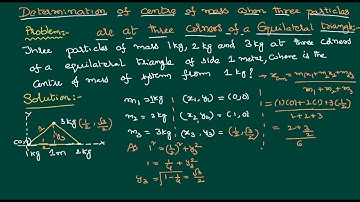 Determination of centre of mass when three particles
Problem:- are at three corners of a Equilateral triangle
Three particles of mass 1kg, 2kg and 3kg at three corners
of a equilateral triangle of side 1 metre, where is the
Centre of mass of system from 1 kg?
Solution:-
3kg (1/2, √3/2)
y₃
1/2
(0,0)
1kg 1m 2kg
m₁ = 1kg (x₁, y₁) = (0,0)
m₂ = 2kg (x₂, y₂) = (1,0)
m₃ = 3kg (x₃, y₃) = (1/2, √3/2)
As 1² = (1/2)² + y₃²
1 = 1/4 + y₃²
y₃ = √(1 - 1/4) = √3/2
→ x_cm = (m₁x₁ + m₂x₂ + m₃x₃) / (m₁ + m₂ + m₃)
= ((1)(0) + 2(1) + 3(1/2)) / (1 + 2 + 3)
= (2 + 3/2) / 6